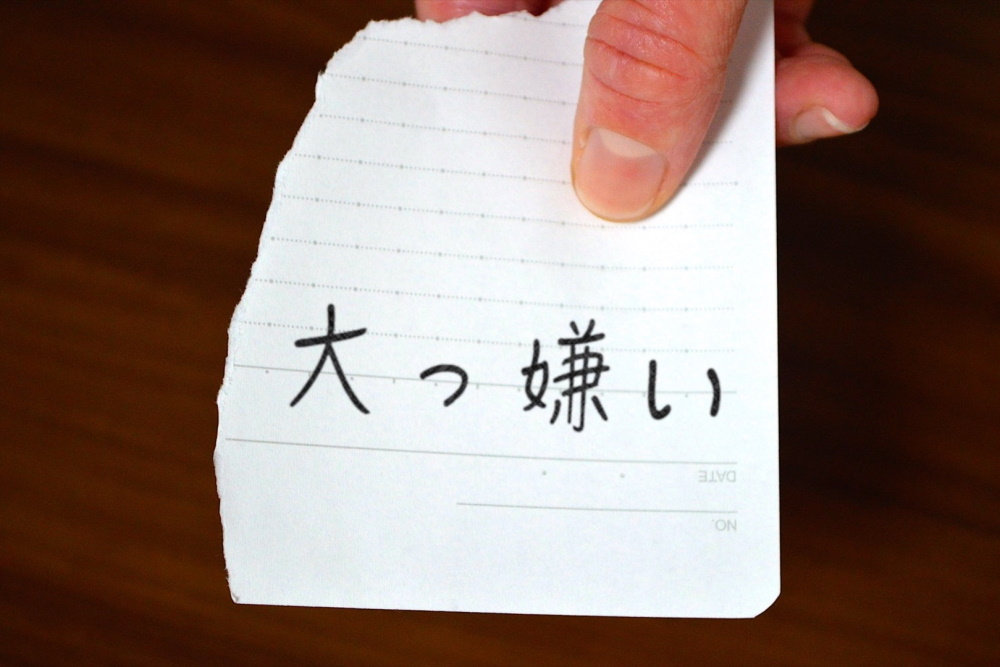 大っ嫌い
DATE
NO.